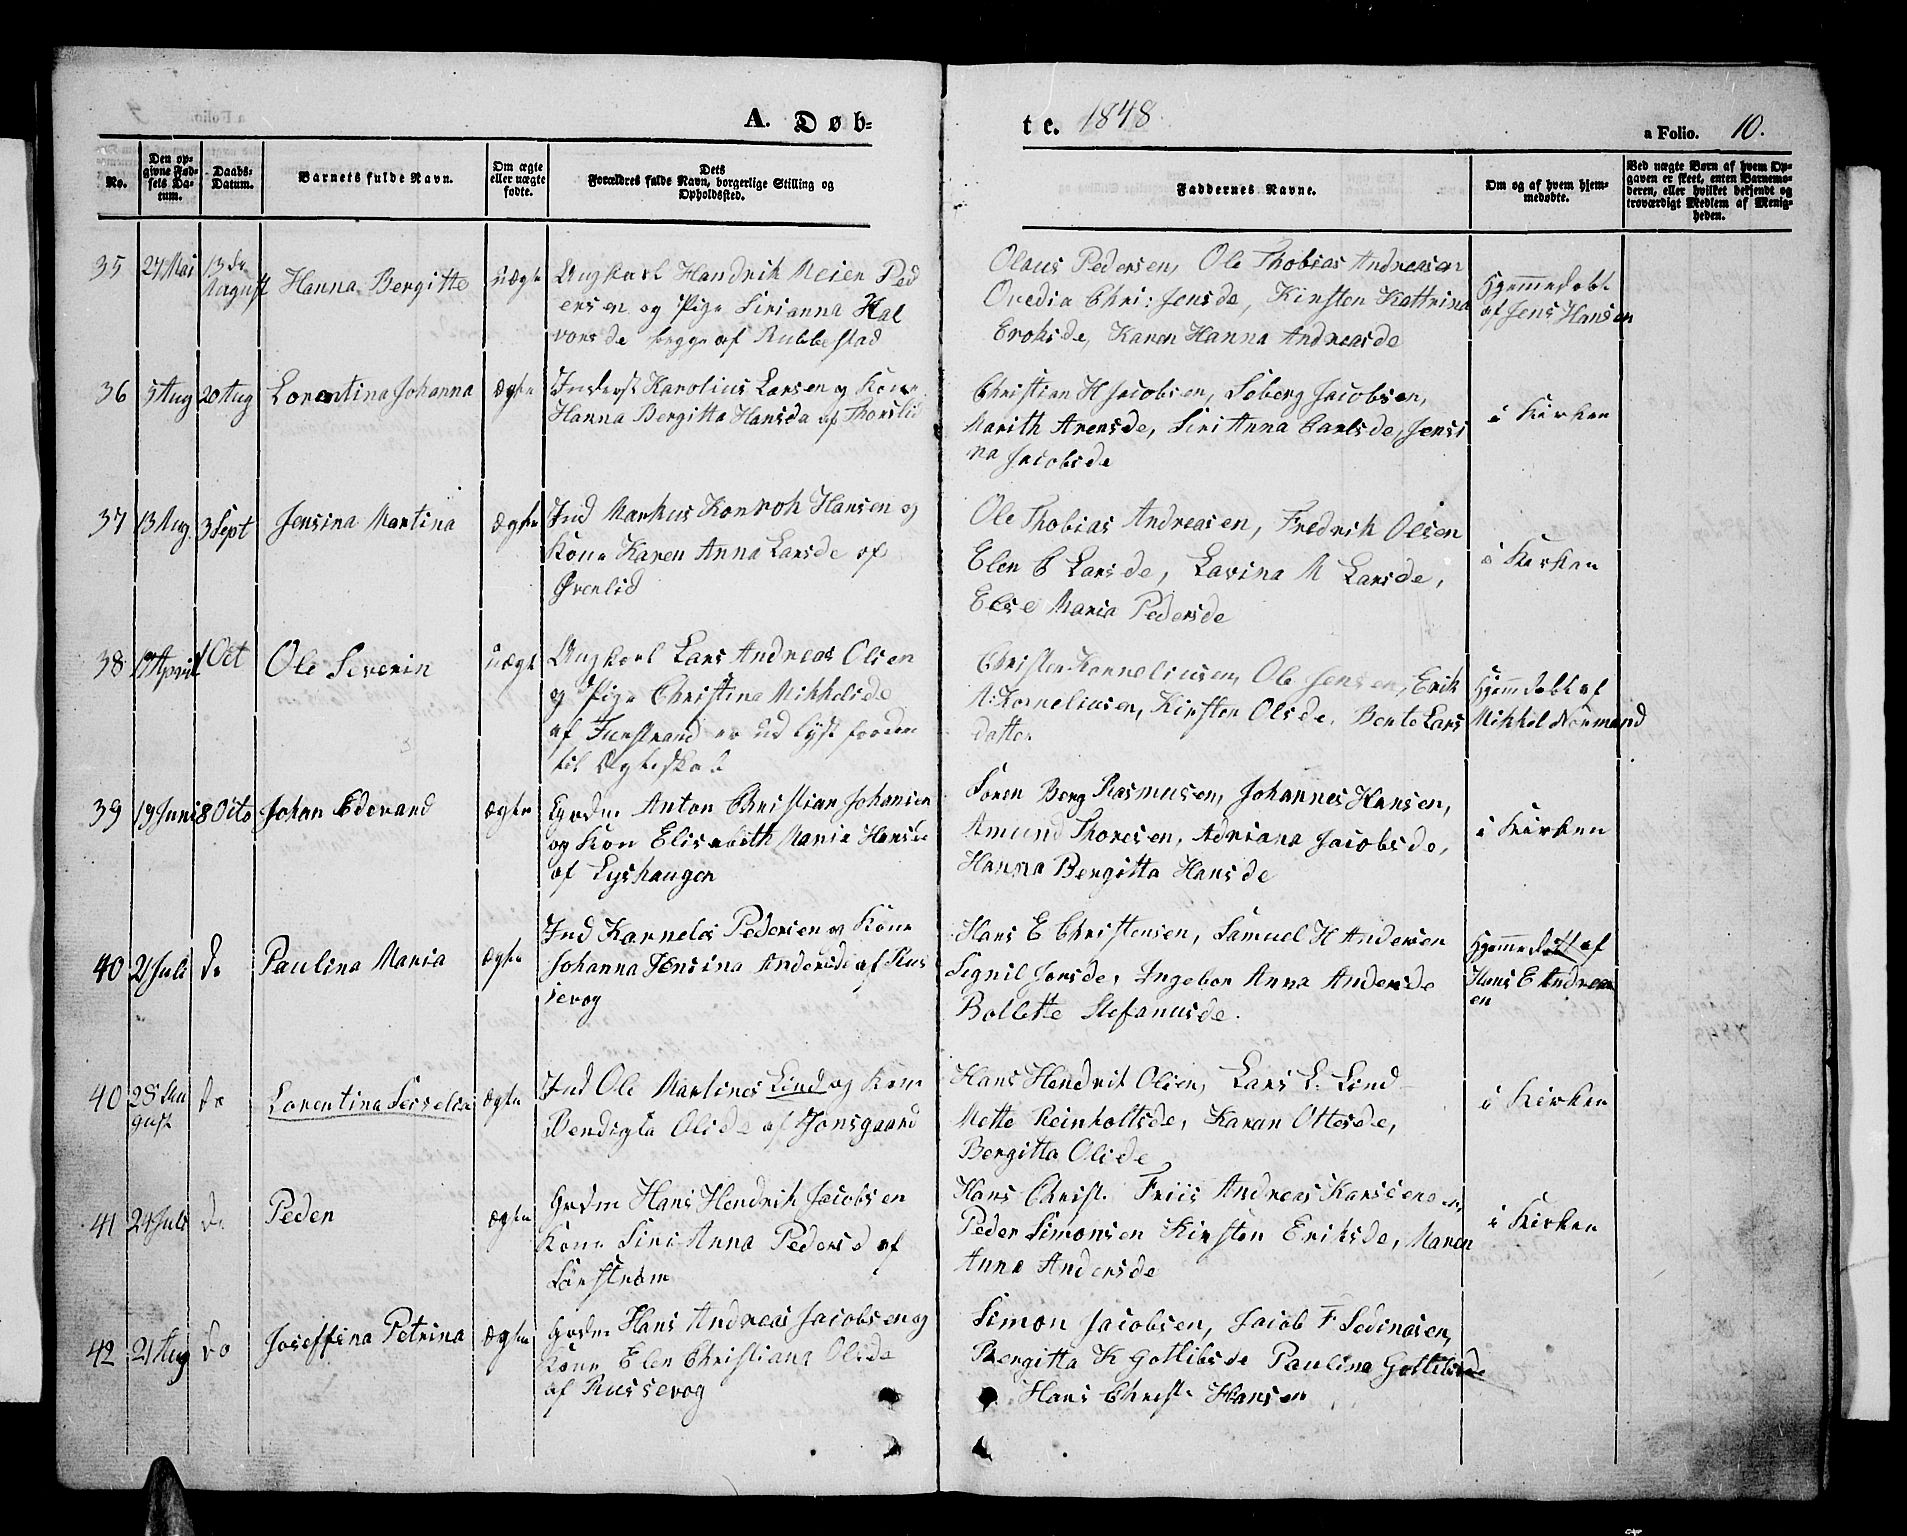 A. Døb-
te. 1848.
a Folio. 10.
No.
Den op-
givne Fød-
sels Da-
tum.
Daabs-
Datum.
Barnets fulde Navn.
Om ægte
eller uægte
fødte.
Dets
Forældres fulde Navn, borgerlige Stilling og
Opholdssted.
Faddernes Navne.
Om og af hvem hjem-
medøbte.
Ved uægte Børn af hvem Op-
gaven er skeet, enten Barnemo-
deren, eller hvilket bekjendt og
troværdigt Medlem af Menig-
heden.
35 24 Mai 13de
August Hanna Bergitte uægte
Ungkarl Hendrik Meier Ped
ersen og Pige Sirianna Hal
vorsde begge af Rubbestad
Olaus Pedersen, Ole Thobias Andreasen
Ovedia Chri: Jensde, Kirsten Kattrina
Eroksde, Karen Hanna Andreasde
Hjemmedøbt
af Jens Hansen
36 5 Aug 20 Aug Lorentina Johanna ægte
Inderst Karolius Larsen og Kone
Hanna Bergitta Hansda af Thorslid
Christian H Jacobsen, Soberg Jacobsen,
Marith Arensde, Siri Anna Carlsde, Jensi
na Jacobsde
i Kirken
37 13 Aug 3 Sept Jensina Martina ægte
Ind Markus Konroh Hansen og
Kone Karen Anna Larsde af
Øvenlid
Ole Thobias Andreasen, Fredrik Olsen
Elen C Larsde, Lavina M Larsde,
Else Maria Pedersde
i Kirken
38 17 April 1 Oct Ole Severin uægte
Ungkarl Lars Andreas Olsen
og Pige Christina Mikkelsde
af Finstrand er udlyst foren
til Ægteskab
Christen Korneliusen, Ole Jensen, Erik
A: Korneliusen, Kirsten Olsde, Berte Lars
datter
Hjemmdøbt af
Mikkel Normand
39 19 Juni 8 Octo Johan Edevard ægte
Grdm Anton Christian Johansen
og Kon Elisabeth Maria Hansde
af Lyshaugen
Soren Berg Rasmusen, Johannes Hansen,
Amund Thoresen, Adriana Jacobsde,
Hanna Bergitta Hansde
i Kirken
40 21 Juli do Paulina Maria ægte
Ind Karnelos Pedersen og Kone
Johanna Jensina Andersde af Rus
sevog
Hans E Christensen, Samuel H Andersen
Signil Jonsde, Ingebor Anna Andersde
Bollette Stefanusde.
Hjemmedøbt af
Hans E Andreas
en
40 28 Au
gust do Lorentina Sesselia ægte
Ind Ole Martines Lind og Kone
Bendigta Olsde af Jonsgaard
Hans Hendrik Olsen, Lars L. Lind
Mette Reinholtsde, Karan Ottesde,
Bergitta Olsde
i Kirken
41 24 Juli do Peder ægte
Grdm Hans Hendrik Jacobsen
Kone Siri Anna Pedersd af
Sørstrøm
Hans Christ. Friis Andreas Karsten
Peder Simonsen Kirsten Eriksde, Maren
Anna Andersde
i Kirken
42 21 Aug do Joseffina Petrina ægte
Grdm Hans Andreas Jacobsen og
Kone Elen Christiana Olsde
af Russevog
Simon Jacobsen, Jacob F Sedinasen,
Bergitta K Gotlibsde Paulina Gotlibsde
Hans Christ. Hansen